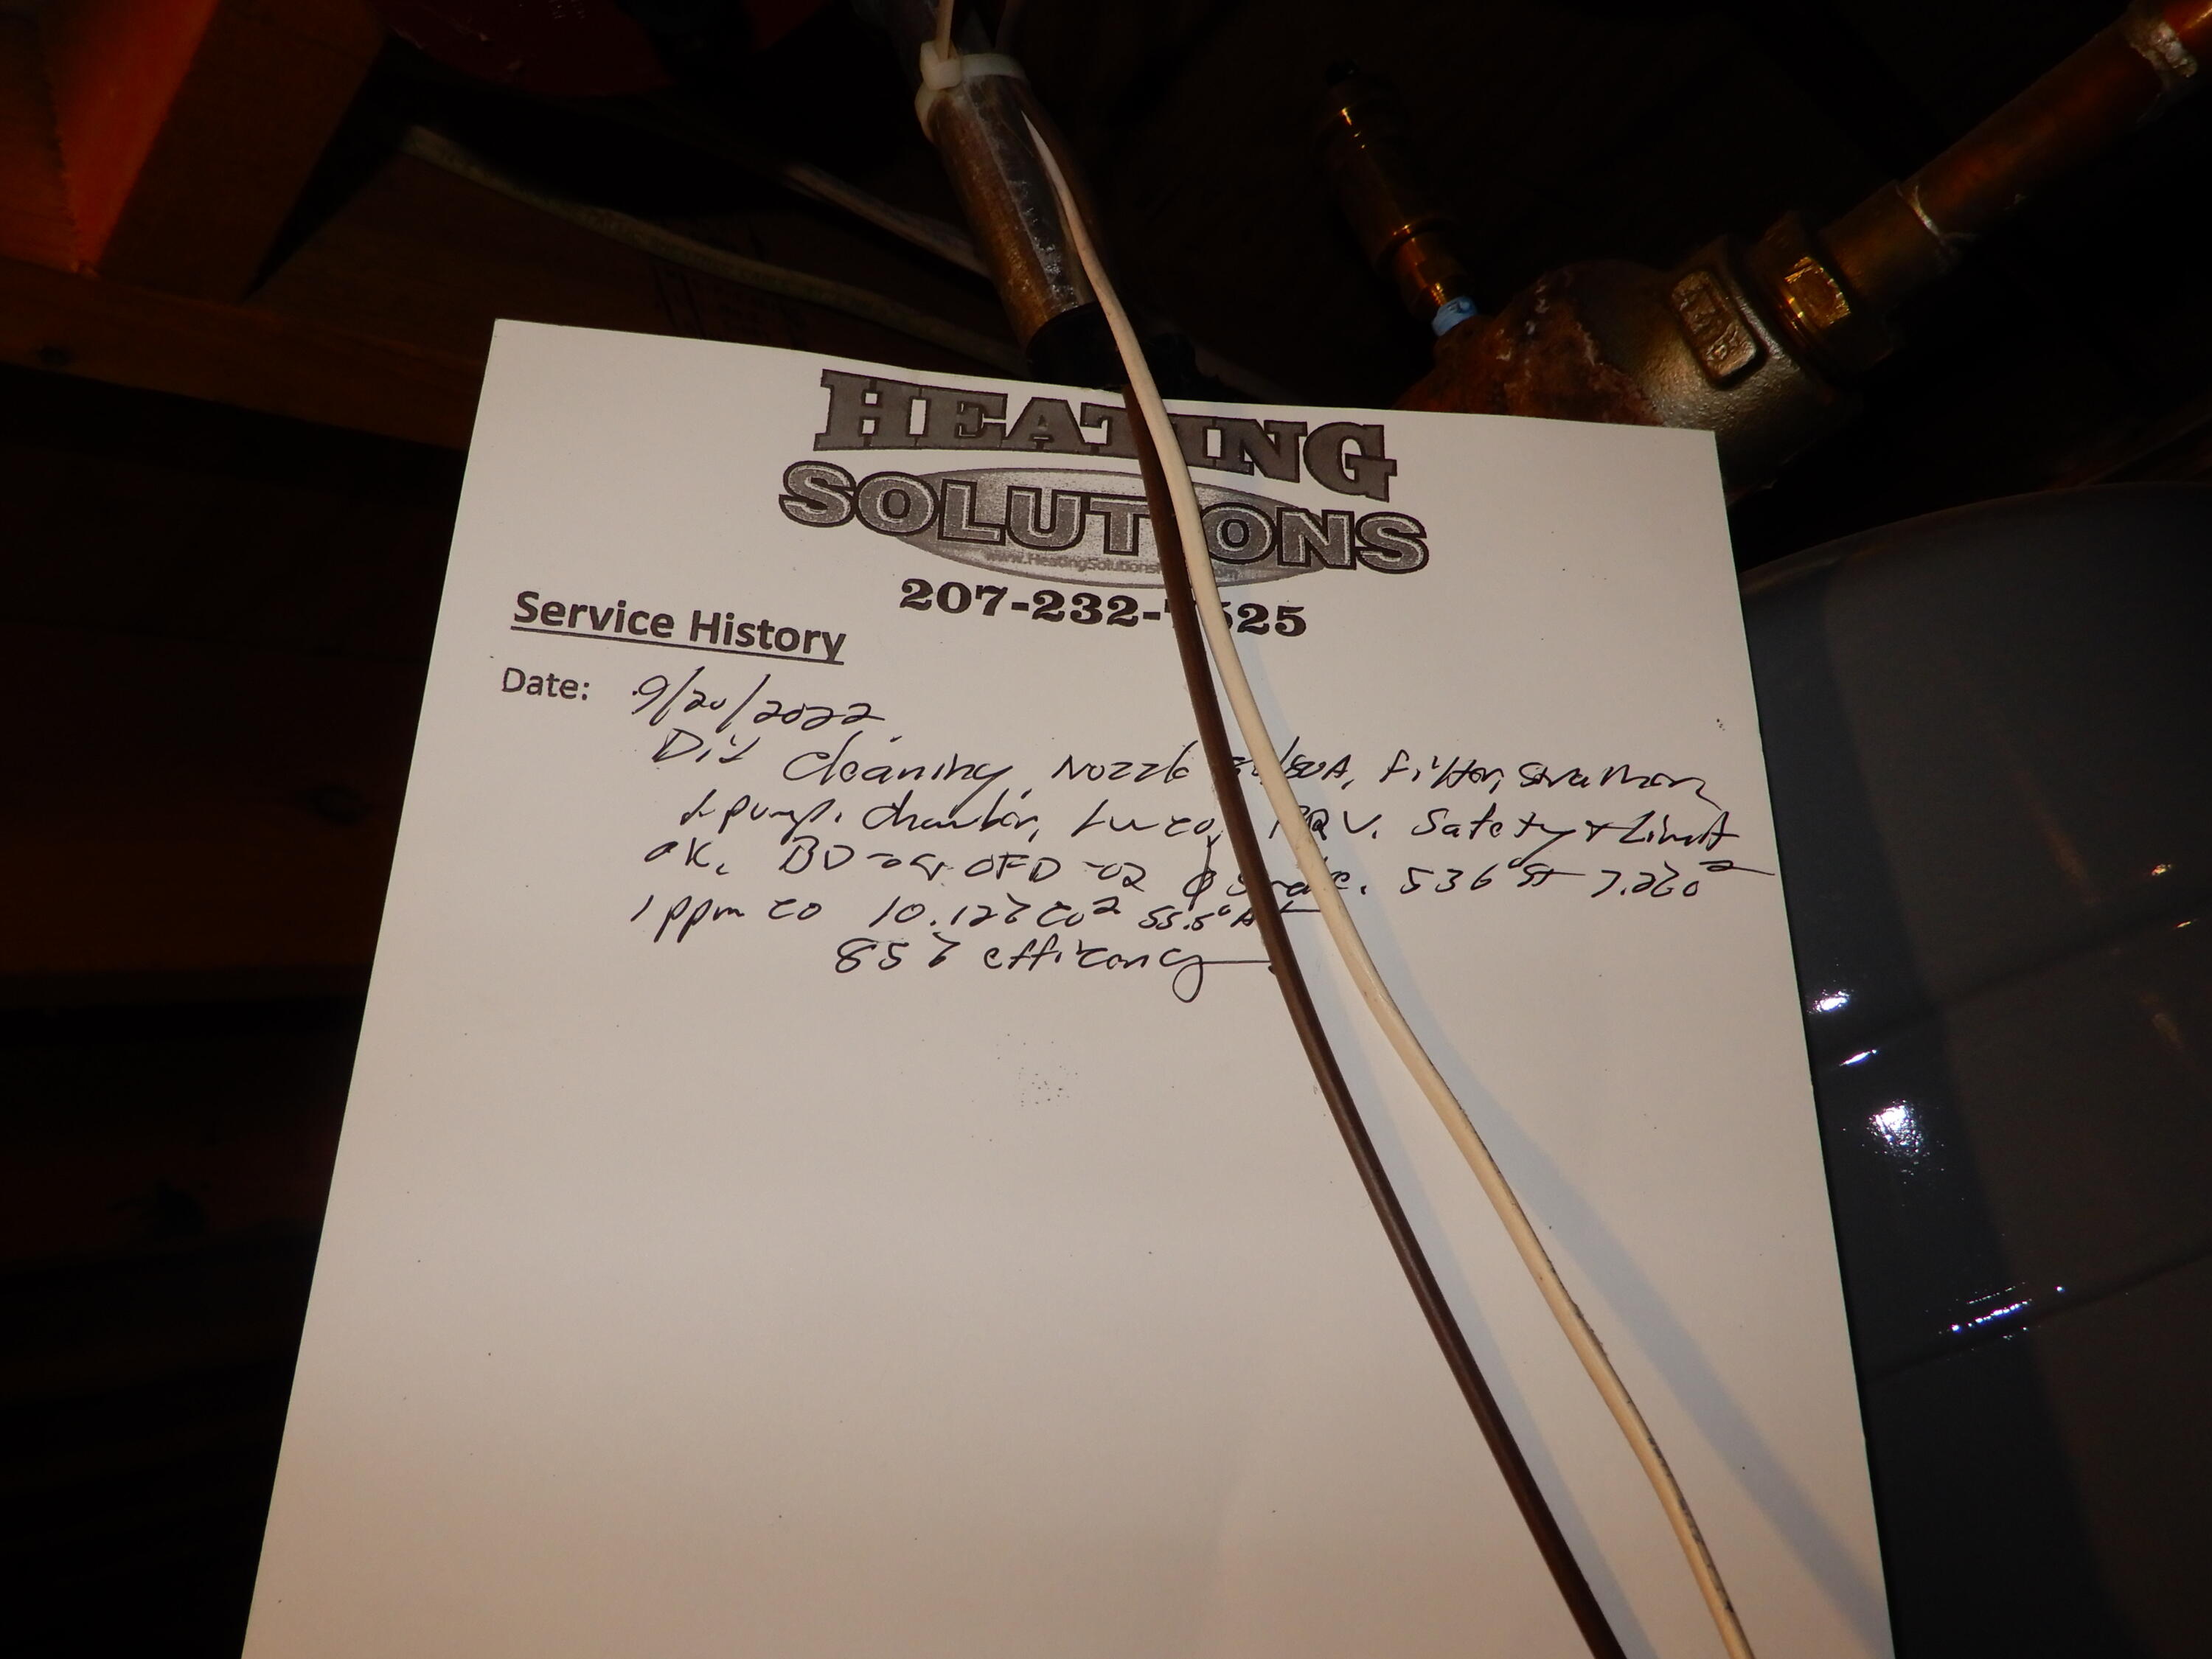 HEATING
SOLUTIONS
www.HeatingSolutions
207-232- 525
Service History
Date: 9/20/2022
Cleaning, Nozzle /80A, Filter, Strainer
+ pump. Chamber, PRV. Safety + Limit
OK. BD OFD -02 Smoke. 536° ST 7.2% O2
1 ppm CO 10.12% CO2 55.5° A
85% efficency